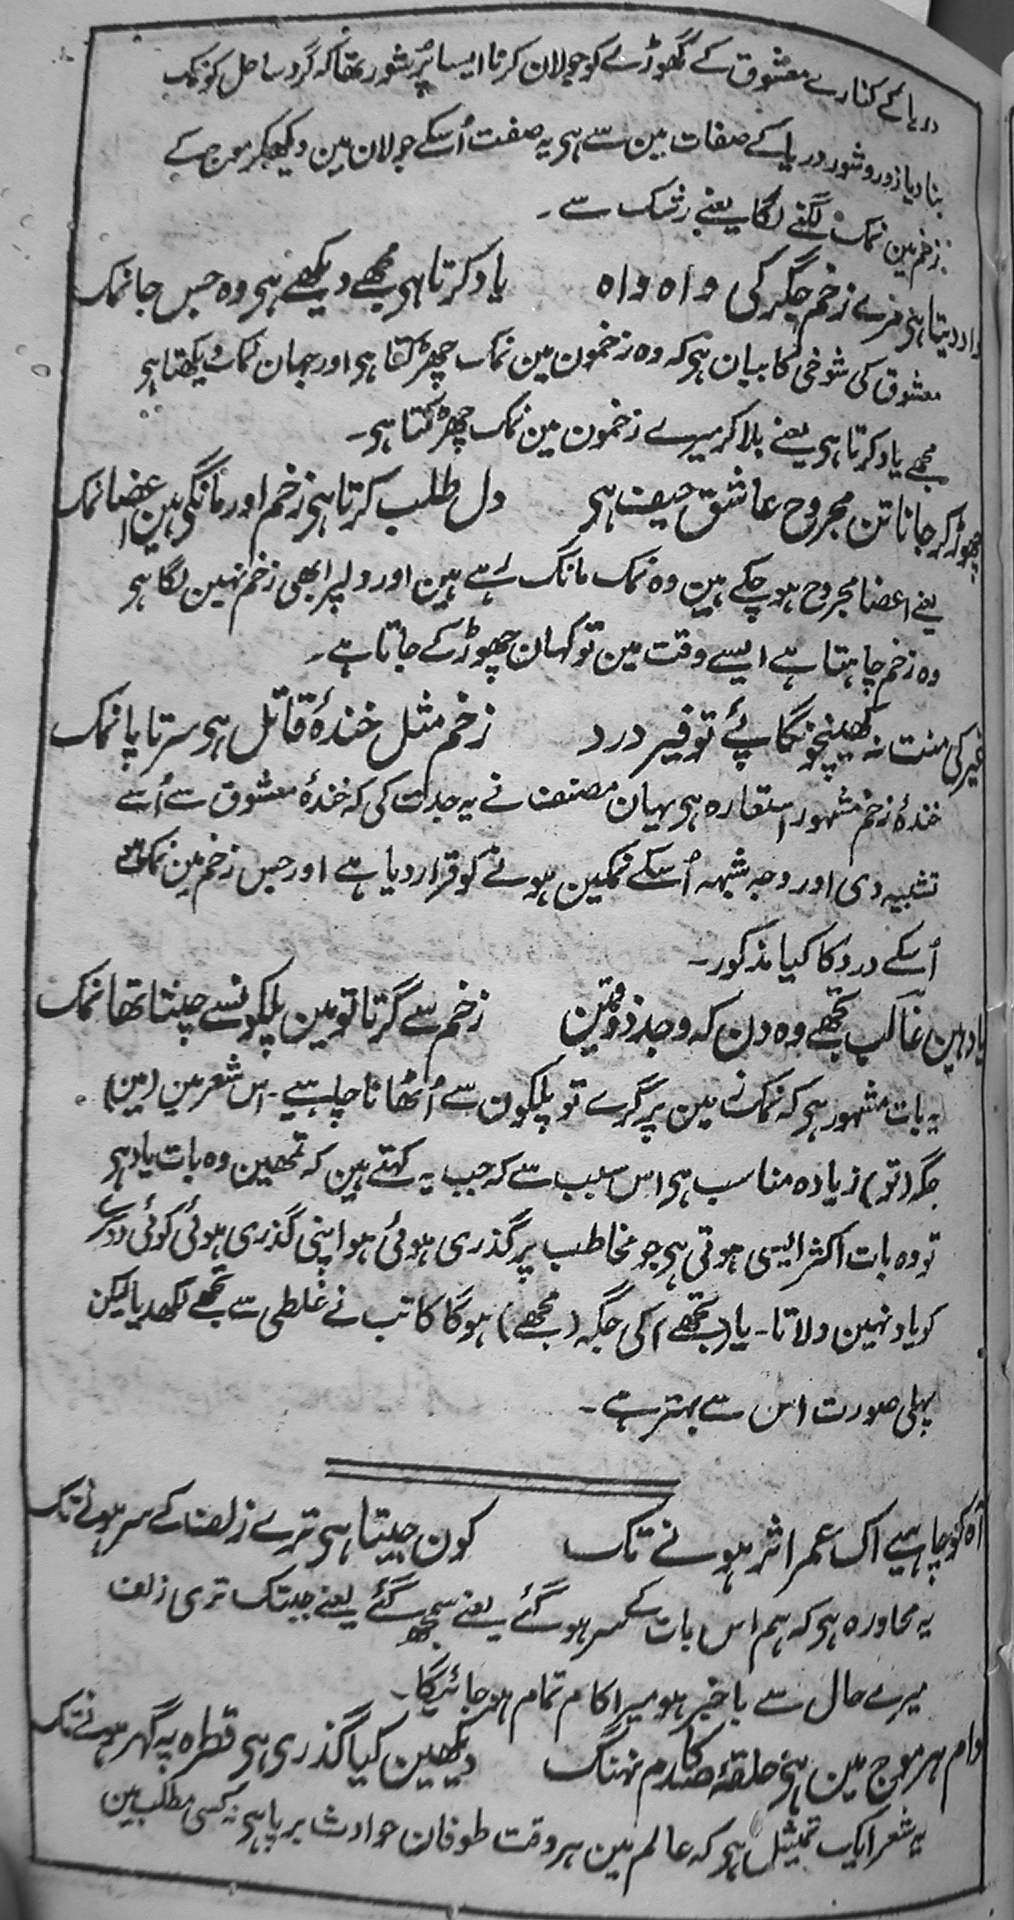 دریا کے کنارے معشوق کے گھوڑے کو جولان کرنا ایسا پُر شور تھا کہ گرد ساحل کو نمک
بنا دیا زور و شور دریا کے صفات مین سے ہی یہ صفت اُسکے جولان مین دیکھکر موج کے
زخم مین نمک لگنے لگا یعنے رشک سے ۔
داد دیتا ہی مرے زخم جگر کی واہ واہ یاد کرتا ہی مجھے دیکھے ہی وہ جس جا نمک
معشوق کی شوخی کا بیان ہی کہ وہ زخمون مین نمک چھڑکتا ہی اور جہان نمک دیکھتا ہی
مجھے یاد کرتا ہی یعنے بلا کر میرے زخمون مین نمک چھڑکتا ہی ۔
چھوڑ کر جانا تن مجروح عاشق حیف ہی دل طلب کرتا ہی زخم اور مانگی ہین اعضا نمک
یعنے اعضا مجروح ہو چکے ہین وہ نمک مانگ رہے ہین اور دلپر ابھی زخم نہین لگا ہی
وہ زخم چاہتا ہے ایسے وقت مین تو کہان چھوڑ کے جاتا ہے ۔
غیر کی منت نہ کھینچونگا پے توفیر درد زخم مثل خندۂ قاتل ہی سر تا پا نمک
خندۂ زخم مشہور استعارہ ہی یہان مصنف نے یہ جدت کی کہ خندۂ معشوق سے اُسے
تشبیہ دی اور وجہ شبہہ اُسکے نمکین ہونے کو قرار دیا ہے اور جس زخم مین نمک ہے
اُسکے درد کا کیا مذکور ۔
یاد ہین غالب تجھے وہ دن کہ وجد ذوق مین زخم سے گرتا تو مین پلکونسے چنتا تھا نمک
یہ بات مشہور ہی کہ نمک زمین پر گرے تو پلکون سے اُٹھانا چاہیے ۔ اس شعر مین (مین)
جگہ (تو) زیادہ مناسب ہی اس سبب سے کہ جب یہ کہتے ہین کہ تمھین وہ بات یاد ہی
تو وہ بات اکثر ایسی ہوتی ہی جو مخاطب پر گذری ہوئی ہو اپنی گذری ہوئی کوئی دوسرے
کو یاد نہین دلاتا ۔ یا (تجھے) کی جگہ (مجھے) ہوگا کاتب نے غلطی سے تجھے لکھدیا لیکن
پہلی صورت اس سے بہتر ہے ۔
آہ کو چاہیے اک عمر اثر ہونے تک کون جیتا ہی ترے زلف کے سر ہونے تک
یہ محاورہ ہی کہ ہم اس بات کے سر ہو گئے یعنے سمجھ گئے یعنے جبتک تری زلف
میرے حال سے باخبر ہو میرا کام تمام ہو جائیگا ۔
دام ہر موج مین ہی حلقۂ صد کام نہنگ دیکھین کیا گذری ہی قطرہ پہ گہر ہونے تک
یہ شعر ایک تمثیل ہی کہ عالم مین ہر وقت طوفان حوادث برپا ہی نہ کسی مطلب مین